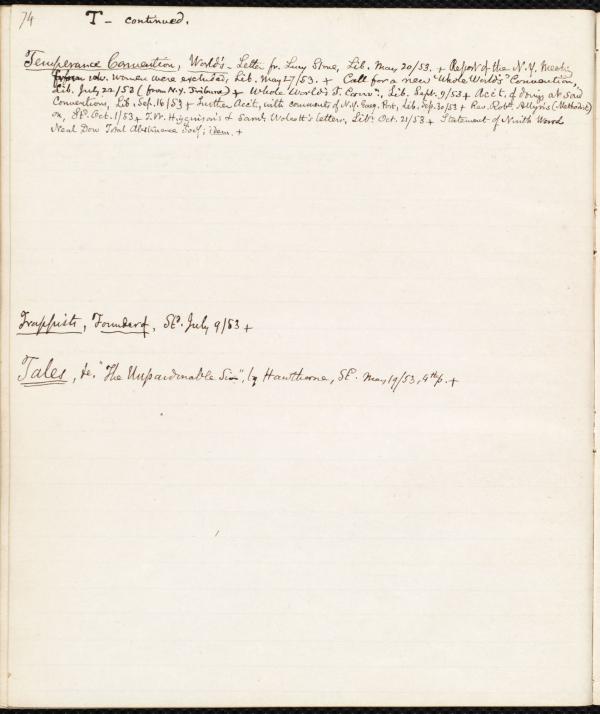 74
T - continued.
Temperance Convention, World's - Letter fr. Lucy Stone, Lib. May 20/53. + Report of the N.Y. Meetg
from wh. women were excluded, Lib. May 27/53. + Call for a new "Whole World's" Convention,
Lib. July 22/53 (from N.Y. Tribune) + Whole World's T. Conv.n, Lib. Sept. 9/53 + Acc't. of doings at said
Convention, Lib. Sep. 16/53 + Further Acc't, with comments of N.Y. Evg. Post, Lib. Sep. 30/53 + Rev. Robt. Allyn's (Methodist)
on, Sd. Oct. 1/53 + T.W. Higginson's & Saml. Wolcott's letters, Lib. Oct. 21/53 + Statement of Ninth Ward
Neal Dow Total Abstinence Socy; idem. +
Trappists, Founder of, Sd. July 9/53 +
Tales, &c. "The Unpardonable Sin", by Hawthorne, Sd. May 19/53, 4th p. +